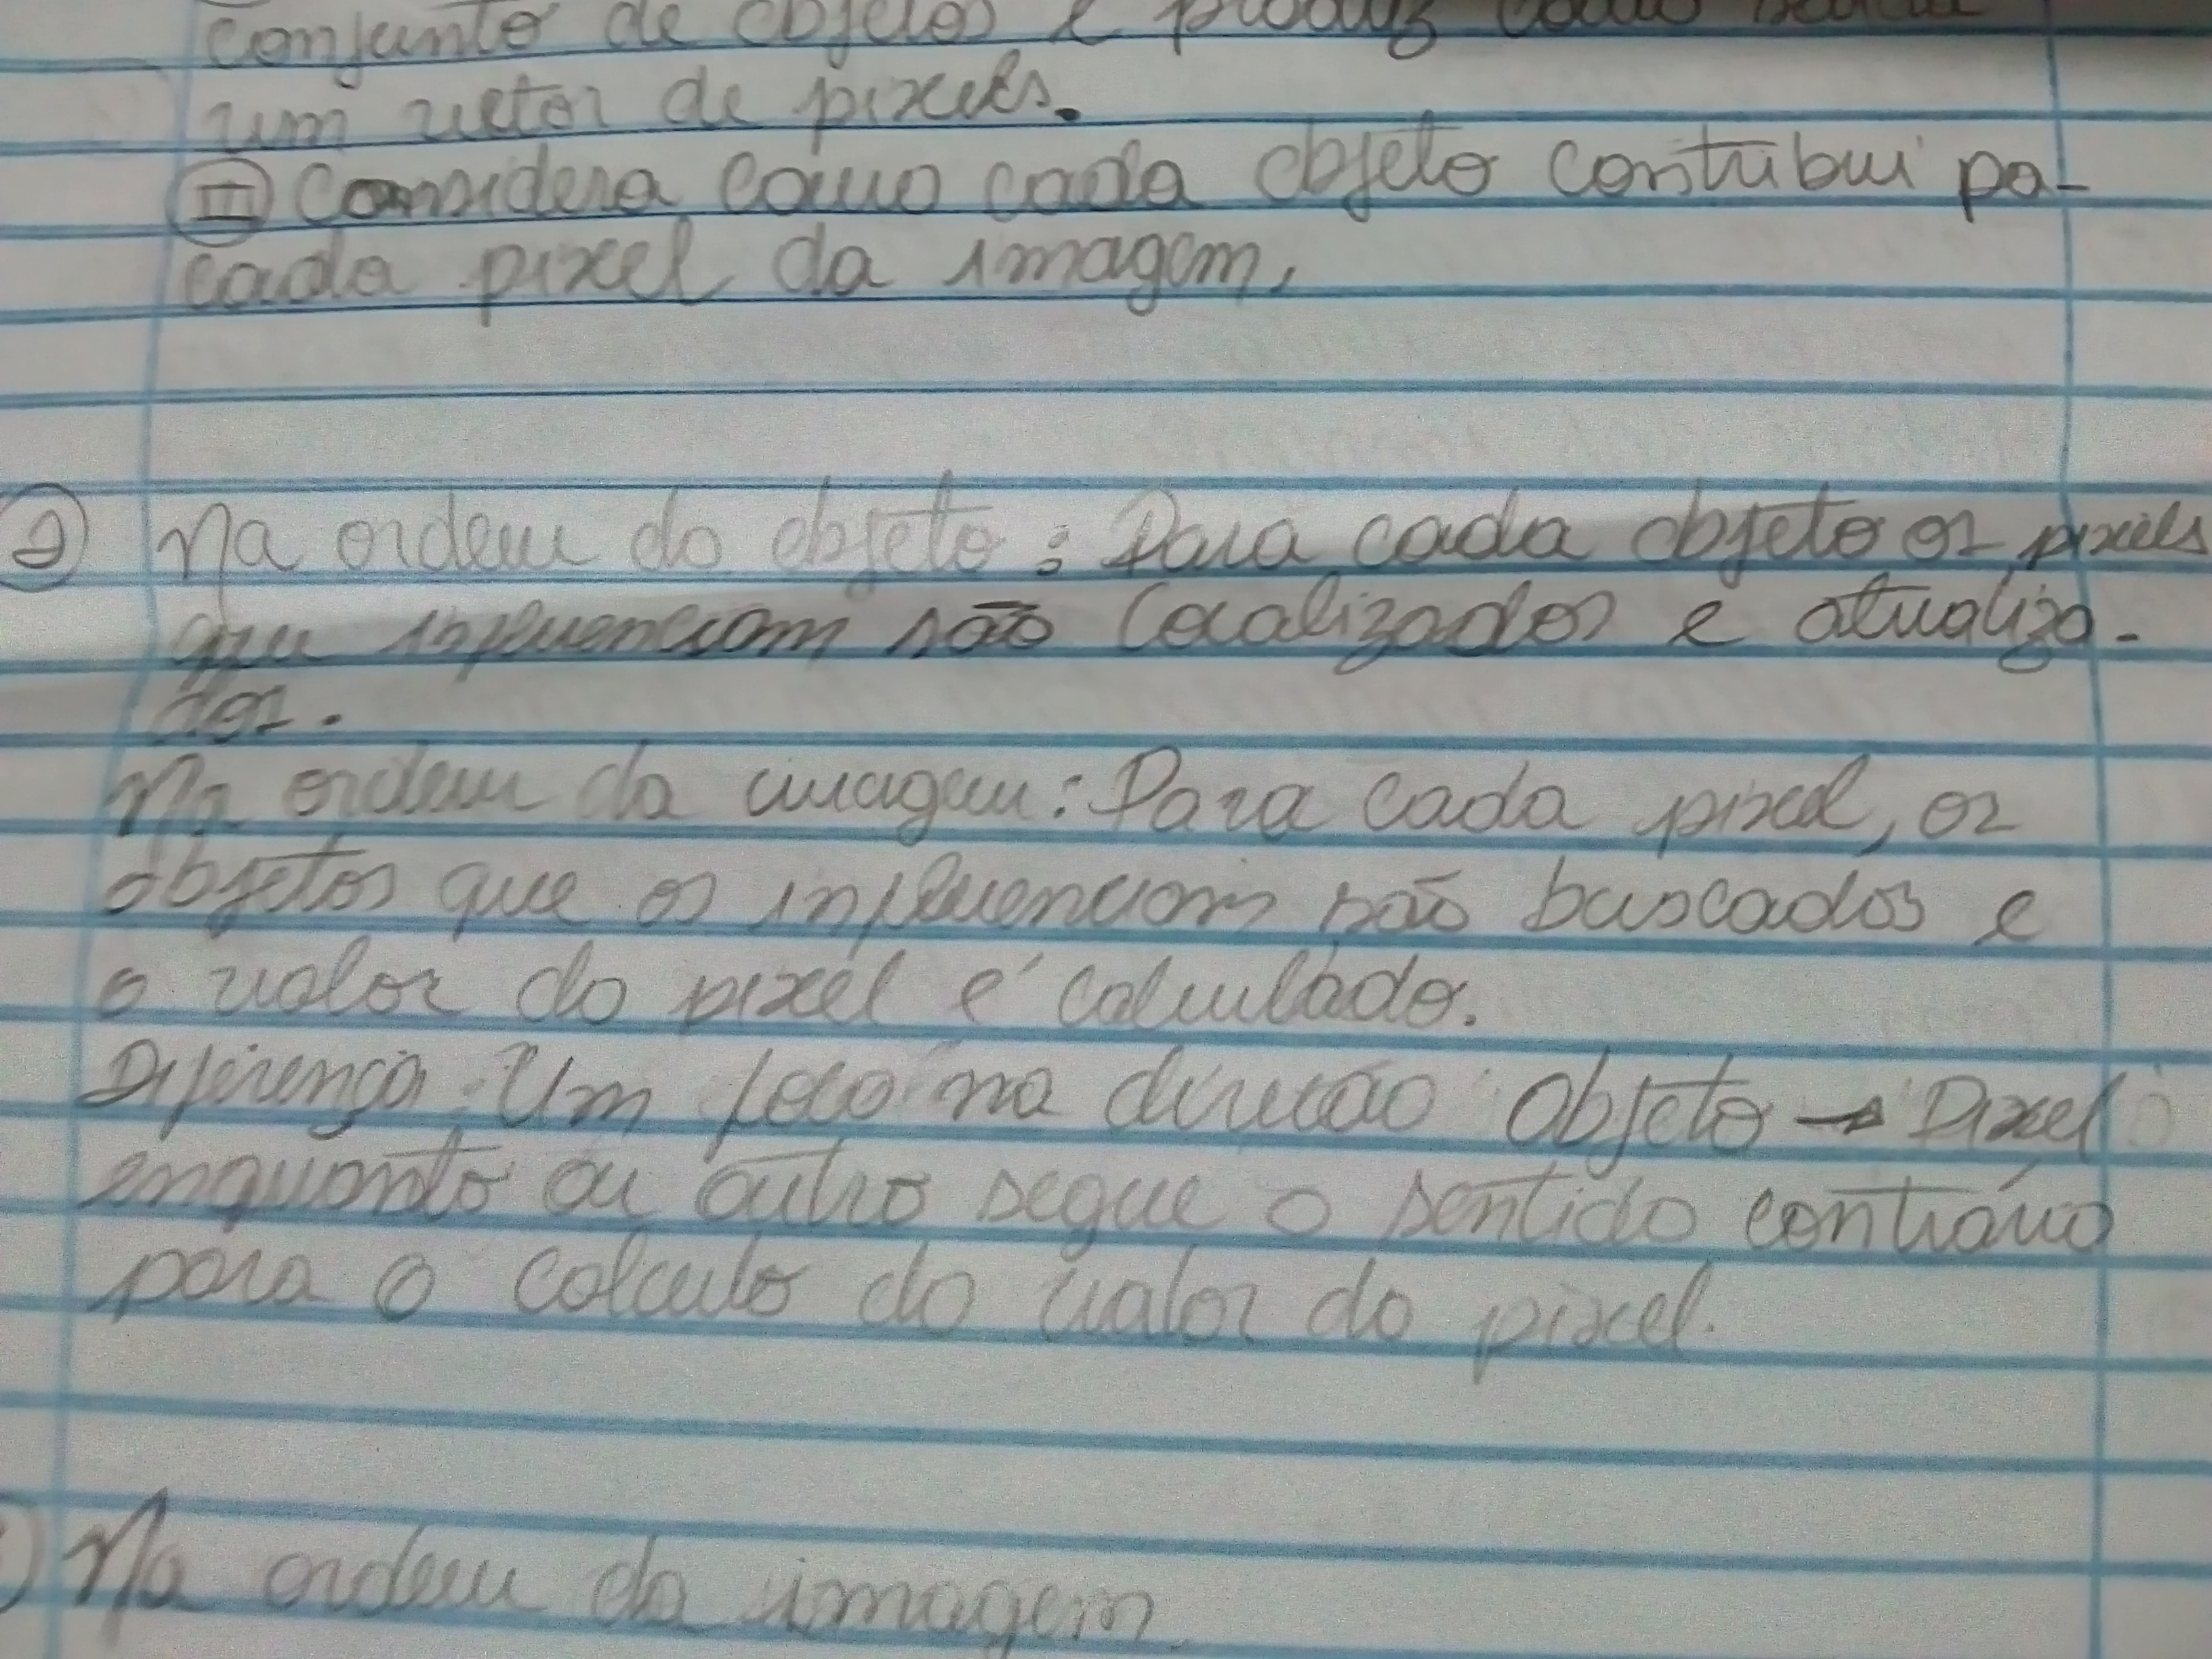 conjunto de objetos e produz como saída
um vetor de pixels.
III Considera como cada objeto contribui pa-
cada pixel da imagem,
2 Na ordem do objeto: Para cada objeto os pixels
que influenciam são localizados e atualiza-
dos.
Na ordem da imagem: Para cada pixel, os
objetos que os influenciam são buscados e
o valor do pixel é calculado.
Diferença: Um foco na direcão Objeto → Pixel
enquanto ou outro segue o sentido contrário
para o calculo do valor do pixel.
Na ordem da imagem